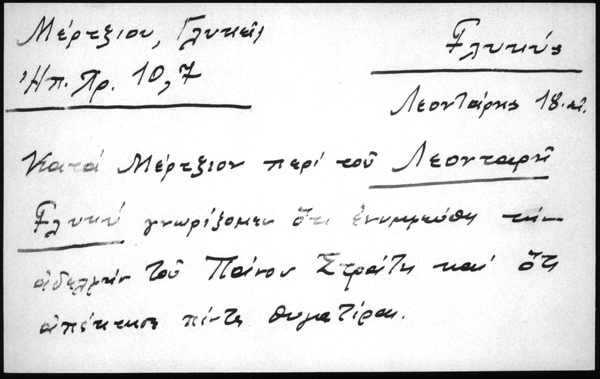 Μέρτζιου, Γλυκεῖς
Γλυκύς
Ἠπ. Χρ. 10,7
Λεοντάρης 18. αἰ.
Κατά Μέρτζιον περί τοῦ Λεονταρῆ
Γλυκύ γνωρίζομεν ὅτι ἐνυμφεύθη τήν
ἀδελφήν τοῦ Πάνου Στράτη καί ὅτι
ἀπέκτησε πέντε θυγατέρας.